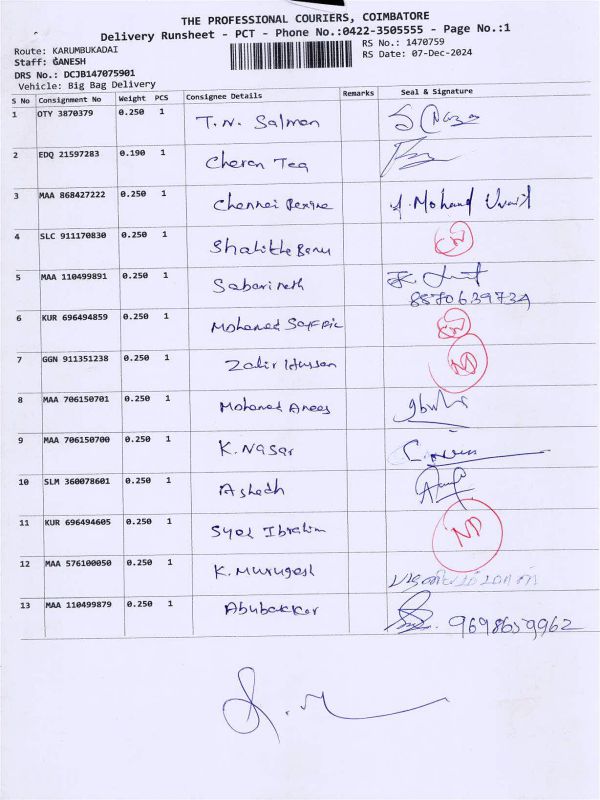 THE PROFESSIONAL COURIERS, COIMBATORE
Delivery Runsheet - PCT - Phone No.:0422-3505555 - Page No.:1
Route: KARUMBUKADAI
RS No.: 1470759
Staff: GANESH
RS Date: 07-Dec-2024
DRS No.: DCJB147075901
Vehicle: Big Bag Delivery
S No Consignment No Weight PCS Consignee Details Remarks Seal & Signature
1 OTY 3870379 0.250 1 T.N. Salman
2 EDQ 21597283 0.190 1 Cheran Tea
3 MAA 868427222 0.250 1 Chennai
4 SLC 911170830 0.250 1 Shalikha Banu
5 MAA 110499891 0.250 1 Sabarinath
8870639734
6 KUR 696494859 0.250 1 Mohamed
7 GGN 911351238 0.250 1 Zakir Hussan ND
8 MAA 706150701 0.250 1 Mohamed Anees
9 MAA 706150700 0.250 1 K. Nasar
10 SLM 360078601 0.250 1
11 KUR 696494605 0.250 1 Syed Ibrahim ND
12 MAA 576100050 0.250 1 K. Murugesh
13 MAA 110499879 0.250 1 Abubakkar 9698659962